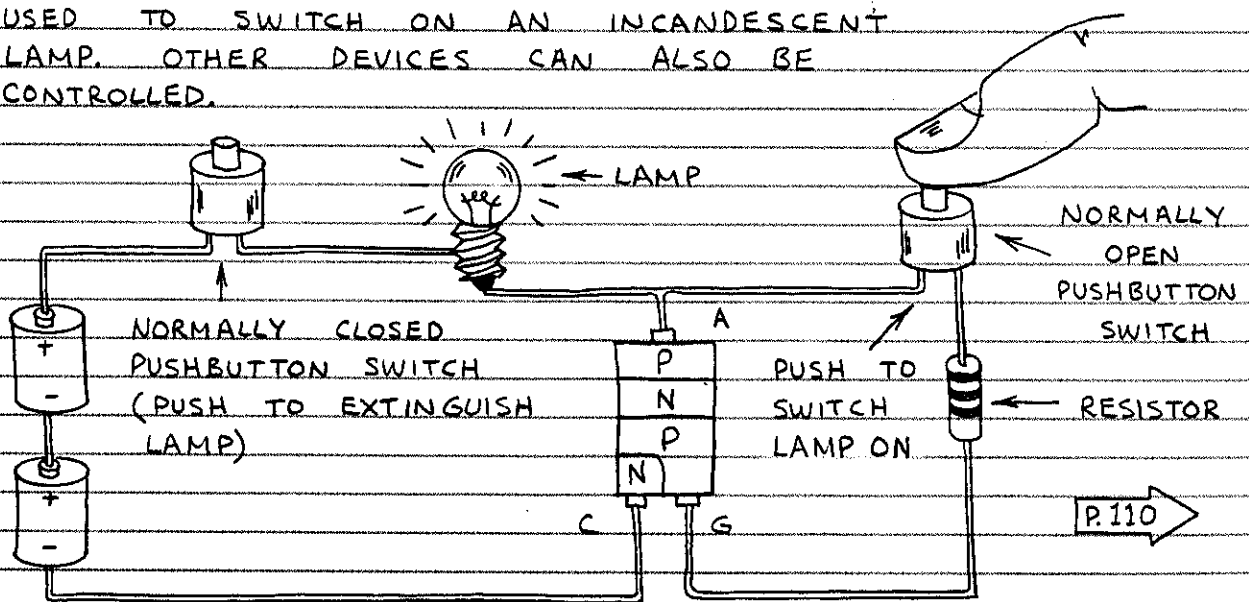 USED TO SWITCH ON AN INCANDESCENT
LAMP. OTHER DEVICES CAN ALSO BE
CONTROLLED.
LAMP
NORMALLY
OPEN
PUSHBUTTON
SWITCH
NORMALLY CLOSED
PUSHBUTTON SWITCH
(PUSH TO EXTINGUISH
LAMP)
+
-
+
-
A
P
N
P
N
C
G
PUSH TO
SWITCH
LAMP ON
RESISTOR
P. 110